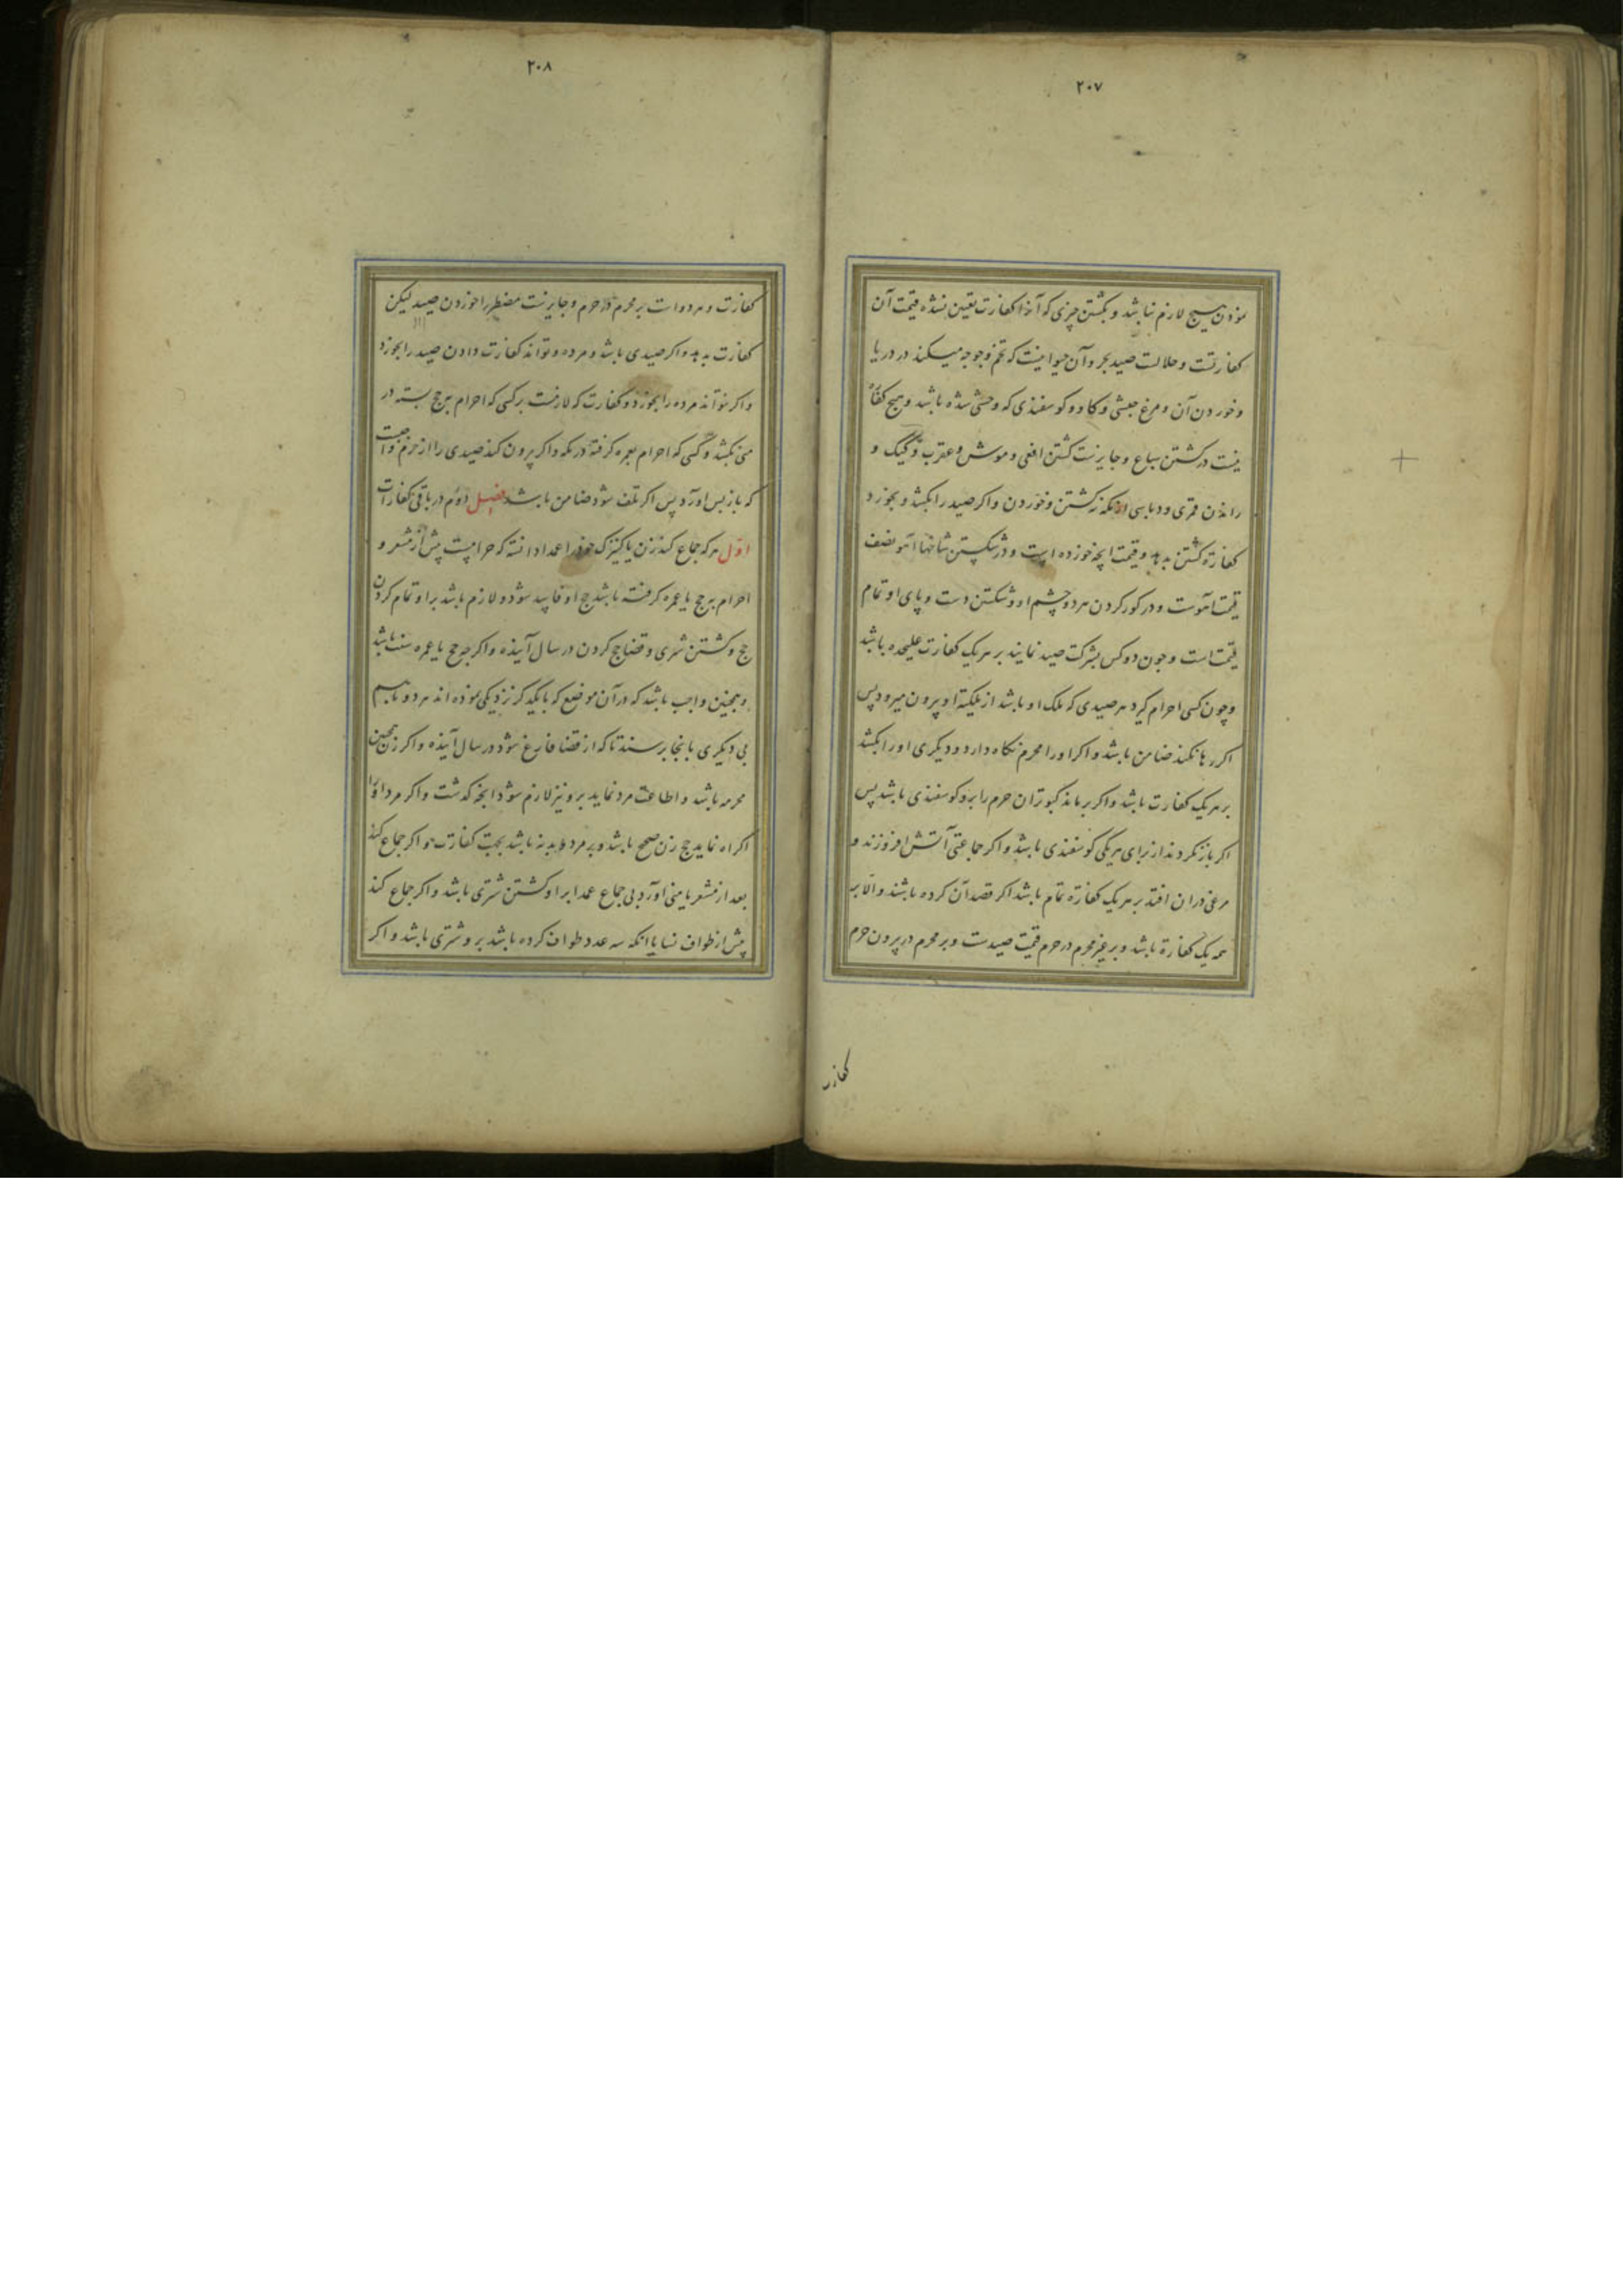 ۲۰۷
نمودن هیچ لازم نباشد و بکشتن چیزی که آنرا کفارت تعیین نشده قیمت آن
کفارتست و حلالست صید بحر و آن حیوانیست که تخم و جوجه میکند در دریا
و خوردن آن و مرغ حبشی و کاو و کوسفندی که وحشی شده باشد و هیچ کفاره
نیست در کشتن سباع و جایزست کشتن افعی و موش و عقرب و کیک و
راندن قمری و دباسی از مکه نه کشتن و خوردن و اکر صید را بکشد و بخورد
کفارة کشتن بدهد و قیمت انچه خورده است و در شکستن شاخها آهو نصف
قیمت آهوست و در کور کردن هر دو چشم او و شکستن دست و پای او تمام
قیمت است و چون دو کس بشرکت صید نمایند بر هر یک کفارت علیحده باشد
و چون کسی احرام کیرد هر صیدی که ملک او باشد از ملکیة او بیرون میرود پس
اکر رها نکند ضامن باشد و اکر او را محرم نکاه دارد و دیکری او را بکشد
بر هر یک کفارت باشد و اکر برماند کبوتران حرم را برو کوسفندی باشد پس
اکر باز نکردند از برای هر یکی کوسفندی باشد و اکر جماعتی آتش افروزند و
مرغی دران افتد بر هر یک کفارة تمام باشد اکر قصد آن کرده باشند و الا بر
همه یک کفارة باشد و بر غیر محرم در حرم قیمت صیدست و بر محرم در بیرون حرم
کفارت
۲۰۸
کفارت و هر دو است بر محرم در حرم و جایزست مضطر را خوردن صید لیکن
کفارت بدهد و اکر صیدی باشد و مرده و تواند کفارت دادن صید را بخورد
و اکر نتواند مرده را بخورد و کفارت که لازمست بر کسی که احرام بحج بسته در
منی بکشد و کسی که احرام بعمره کرفته در مکه و اکر بیرون کند صیدی را از حرم واجبست
که باز پس آورد پس اکر تلف شود ضامن باشد فصل دوم در باقی کفارات
اول هر که جماع کند زن یا کنیزک خود را عمدا دانسته که حرامست پیش از مشعر و
احرام بحج یا عمره کرفته باشد حج او فاسد شود و لازم باشد بر او تمام کردن
حج و کشتن شتری و قضا حج کردن در سال آینده و اکر چه حج یا عمره سنت باشد
و همچنین واجب باشد که در آن موضع که با یکدیکر نزدیکی نموده اند هر دو با هم
بی دیکری بانجا نرسند تا که از قضا فارغ شود در سال آینده و اکر زن همچنین
محرمه باشد و اطاعت مرد نماید برو نیز لازم شود انچه کذشت و اکر مرد او را
اکراه نماید حج زن صحیح باشد و بر مرد دو بدنه باشد بجهت کفارت و اکر جماع کند
بعد از مشعر یا منی آورد بی جماع عمدا بر او کشتن شتری باشد و اکر جماع کند
پیش از طواف نسا یا انکه سه عدد طواف کرده باشد برو شتری باشد و اکر